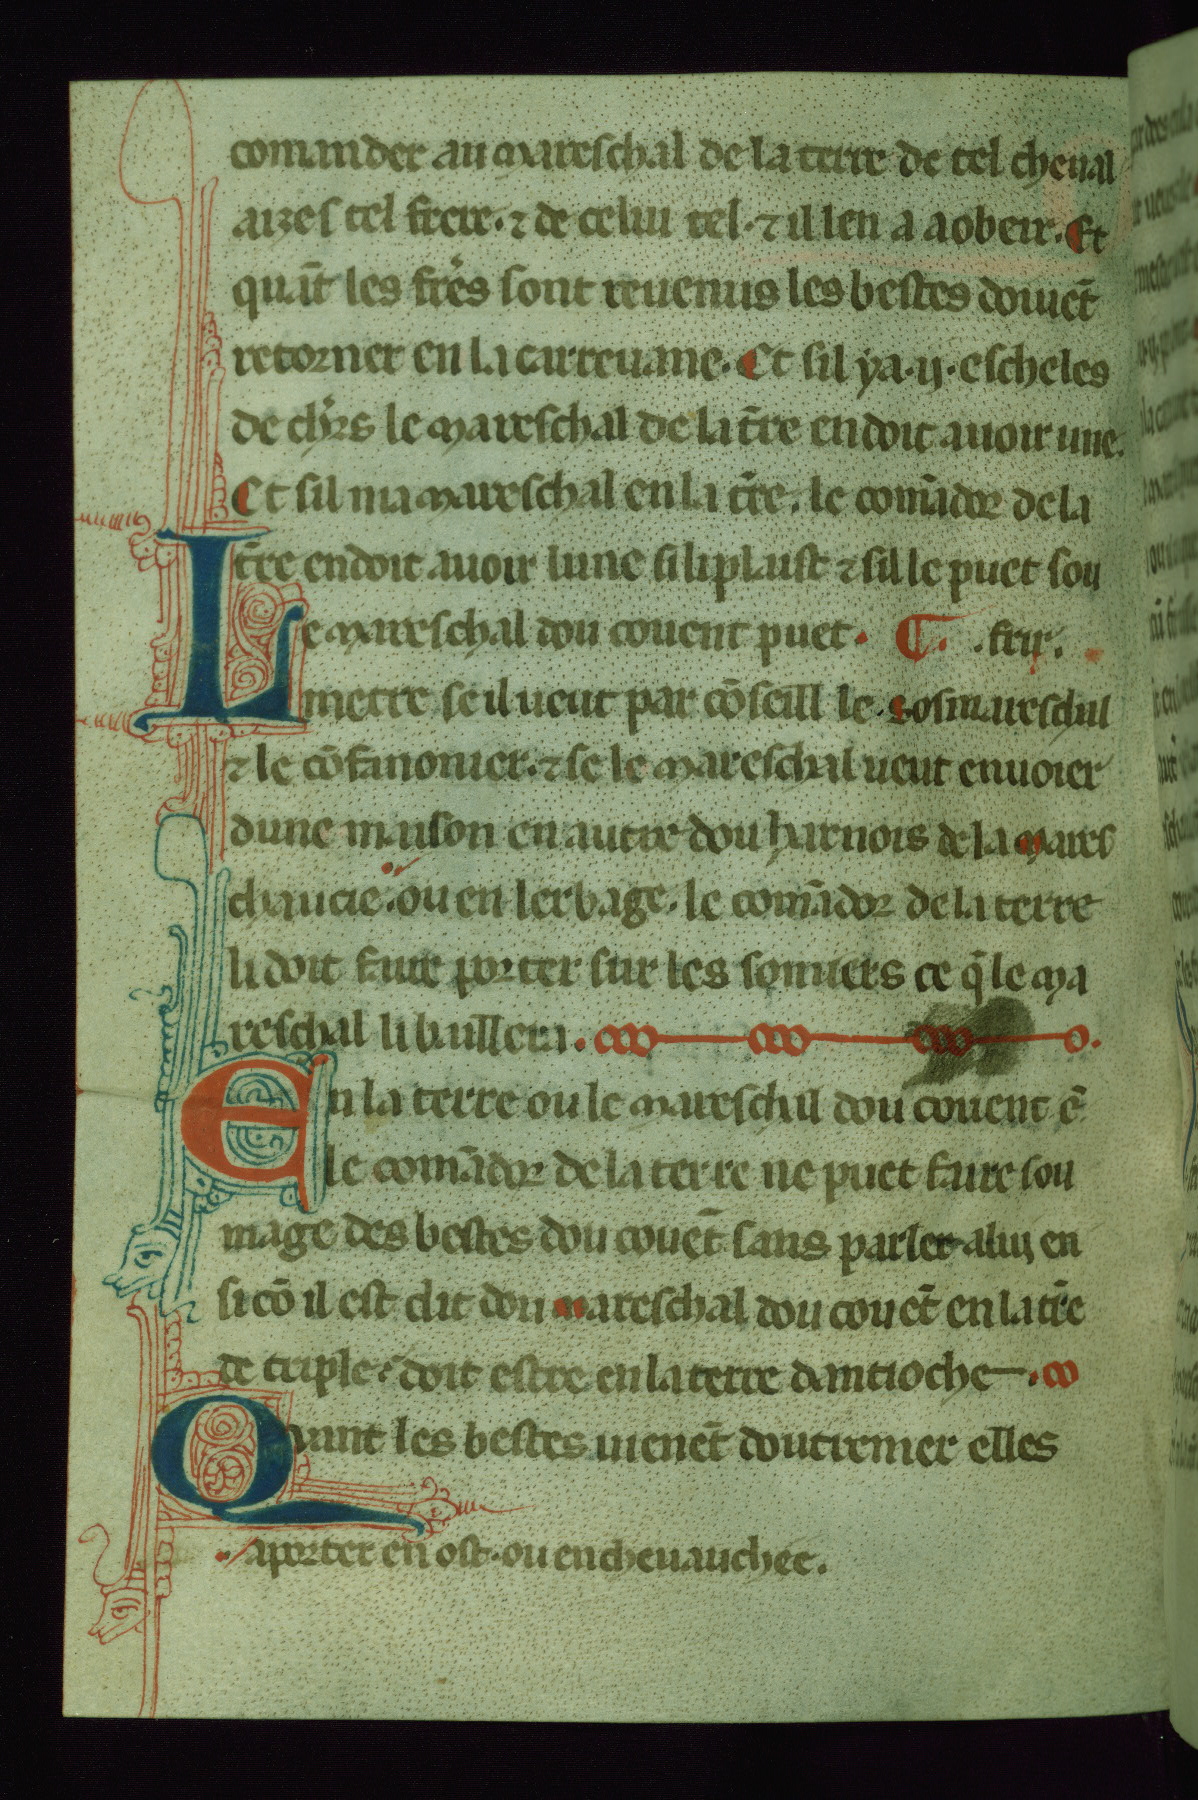 comander au mareschal de la terre de tel cheual
aizes tel frere. ⁊ de celui tel. ⁊ il len a a obeir. Et
quãt les frẽs sont reuenus les bestes doiuẽt
retorner en la carreuane. Et sil ya .ij. escheles
de chĩrs le mareschal de la tr̃e en doit auoir une.
Et sil nia mareschal en la tr̃e. le comãdor de la
tr̃e en doit auoir lune si li plaist ⁊ sil le puet sou
Le mareschal dou couent puet. .frir.
metre se il ueut par cõseill le. sosmareschal
⁊ le cõfanonier. ⁊ se le mareschal ueut enuoier
dune maison en autre dou harnois de la mares
chaucie. ou en lerbage. le comãdor de la terre
li doit faire porter sur les somiers ce q̃ le ma
reschal li baillera.
En la terre ou le mareschal dou couent ẽ
le comãdor de la terre ne puet faire sou
mage des bestes dou couẽt sans parler a lui en
si cõ il est dit dou mareschal dou couẽt en la tr̃e
de triple. doit estre en la terre dantioche
Quant les bestes uienẽt doutremer elles
a porter en ost. ou en cheuauchee.